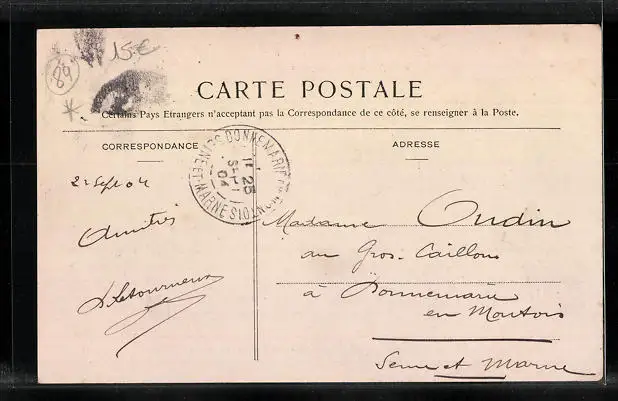 15€
89
CARTE POSTALE
Certains Pays Etrangers n'acceptant pas la Correspondance de ce côté, se renseigner à la Poste.
CORRESPONDANCE
ADRESSE
2 Sept 04
Amitiés
Letourneux
DONNEMARIE-EN-MONTOIS
SEINE-ET-MARNE
11 25
3-9
04
Madame Oudin
au Gros-Caillou
à Donnemarie
en Montois
Seine et Marne